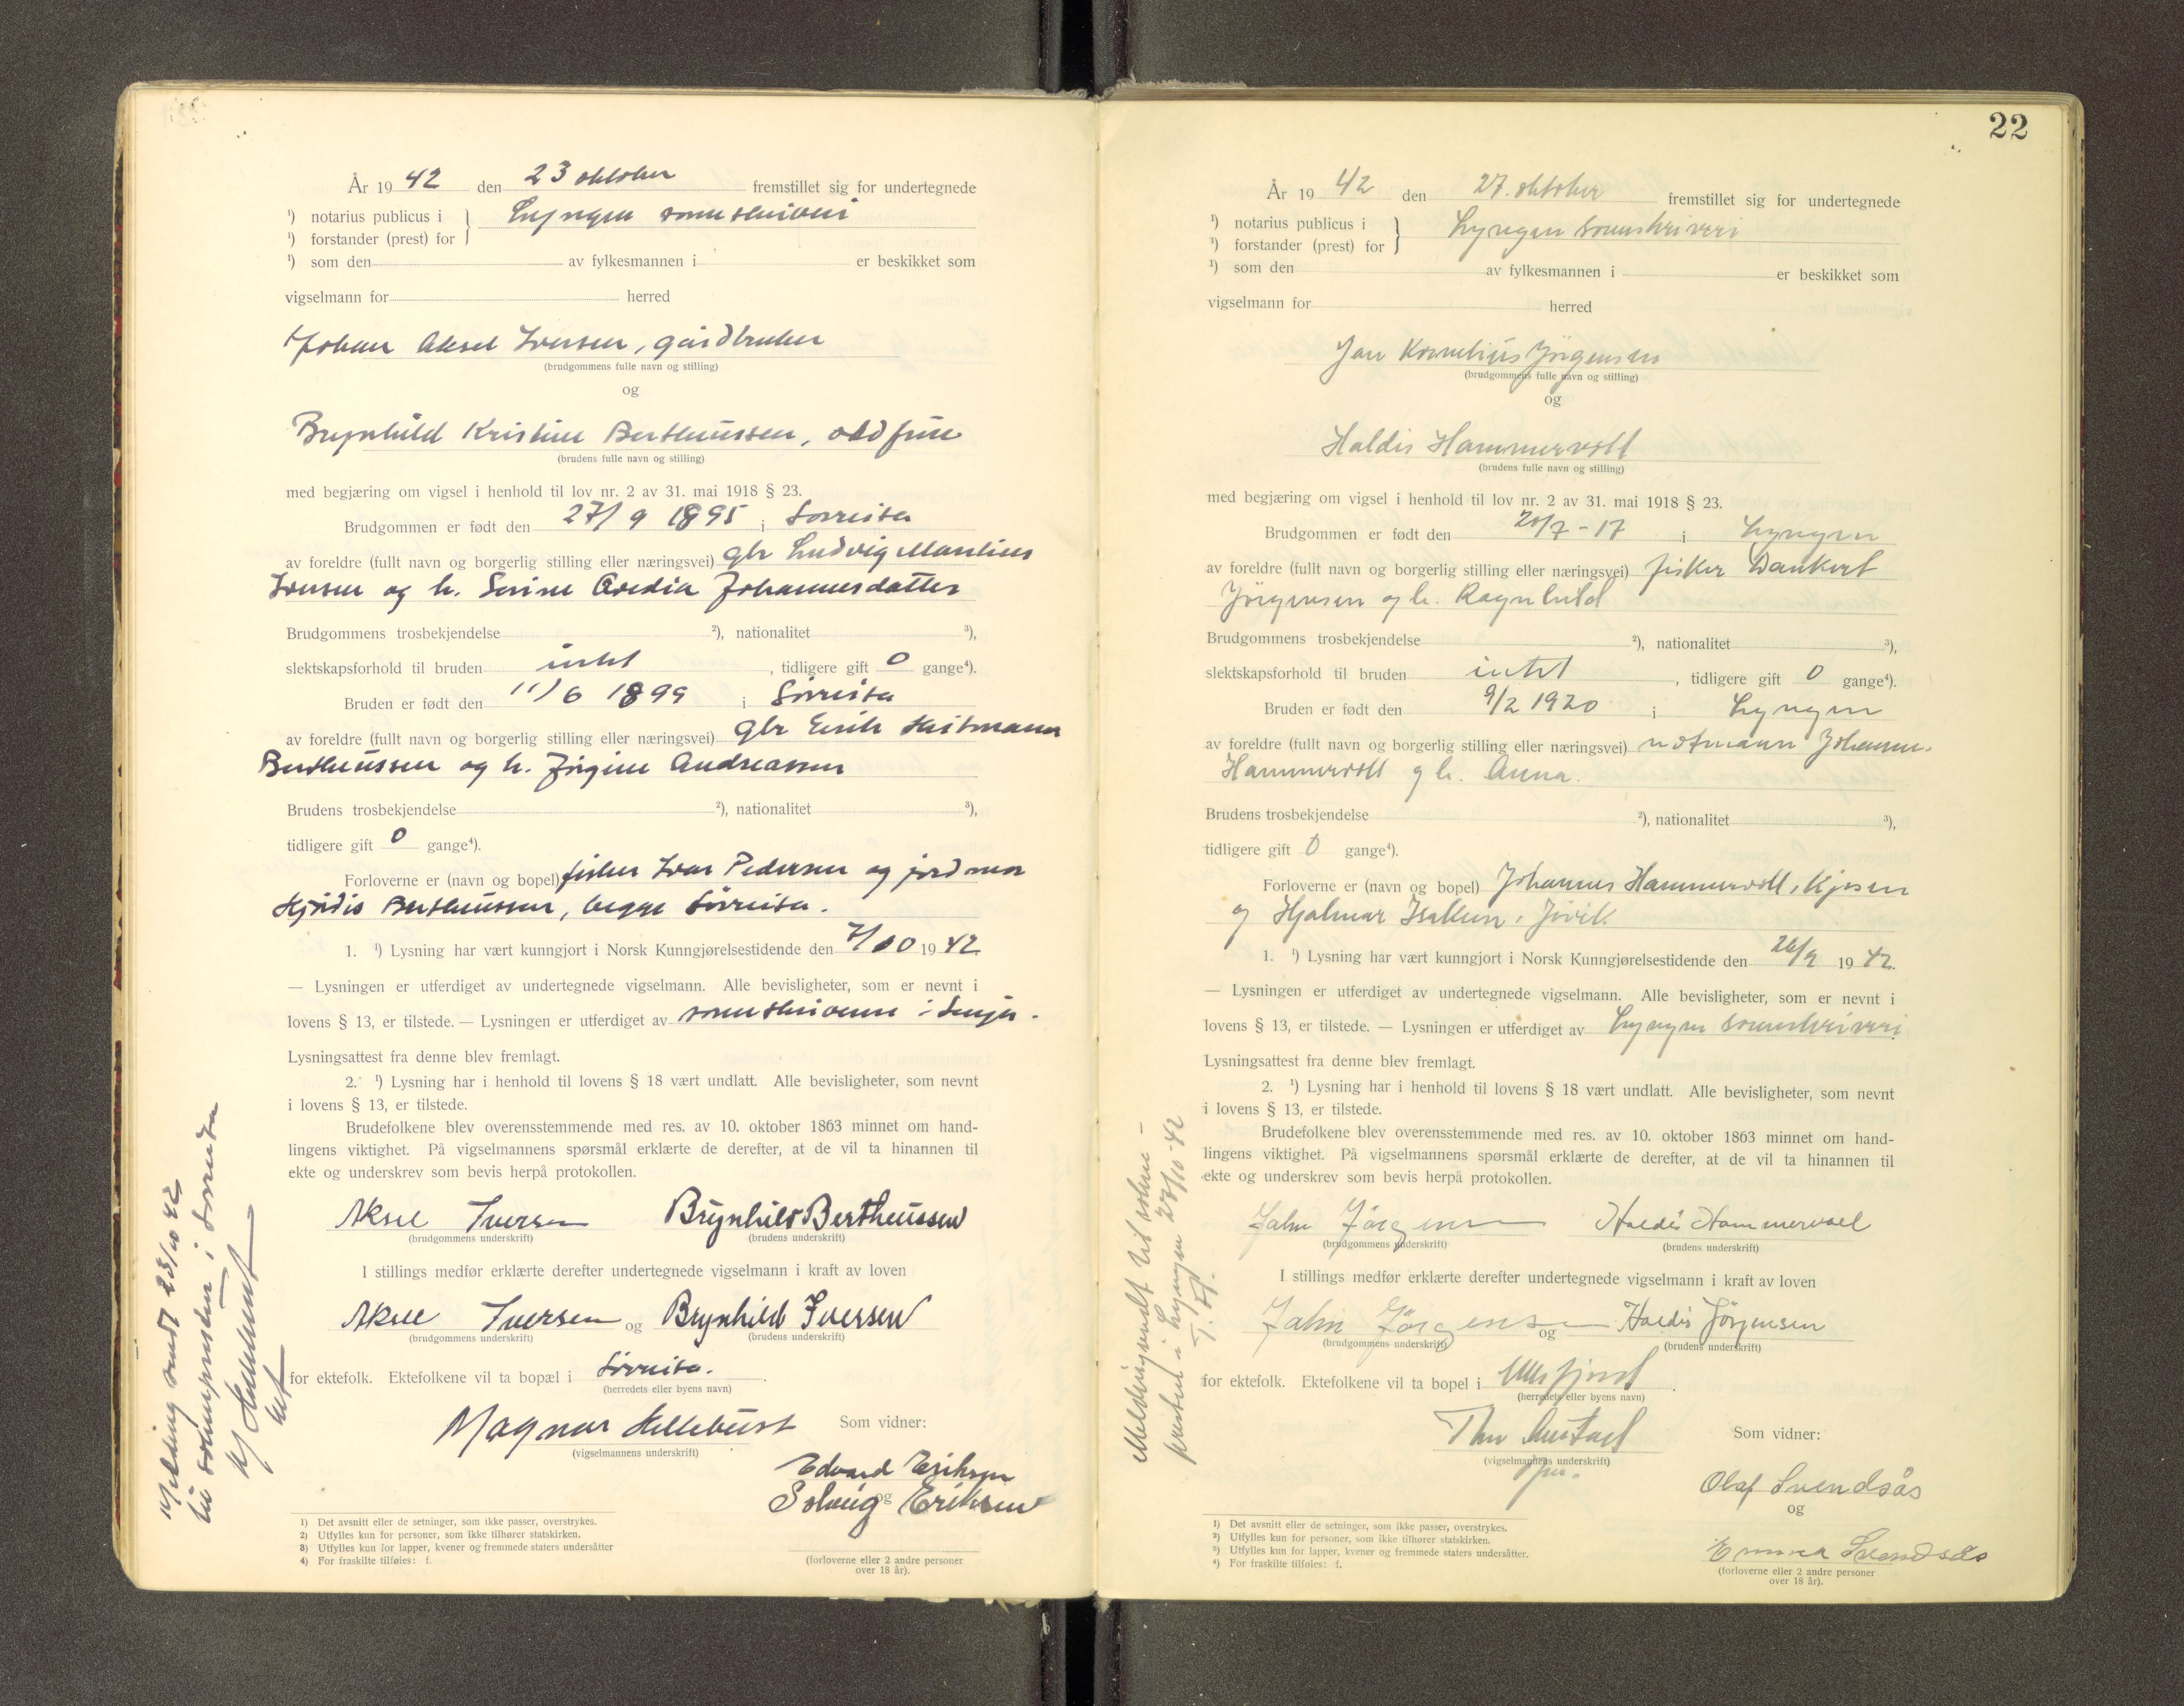 År 19 42 den 23 oktober fremstillet sig for undertegnede
¹) notarius publicus i } Lyngen sorenskriveri
¹) forstander (prest) for
¹) som den av fylkesmannen i er beskikket som
vigselmann for herred
Johan Aksel Iversen, gårdbruker
(brudgommens fulle navn og stilling)
og
Brynhild Kristine Bertheussen, oldfrue
(brudens fulle navn og stilling)
med begjæring om vigsel i henhold til lov nr. 2 av 31. mai 1918 § 23.
Brudgommen er født den 27/9 1895 i Sørreisa
av foreldre (fullt navn og borgerlig stilling eller næringsvei) gbr Ludvig Mantius
Iversen og h. Serine Aredia Johannesdatter
Brudgommens trosbekjendelse ²), nationalitet ³),
slektskapsforhold til bruden intet , tidligere gift 0 gange⁴).
Bruden er født den 11/6 1899 i Sørreisa
av foreldre (fullt navn og borgerlig stilling eller næringsvei) gbr Erik Hartmann
Bertheussen og h. Jørgine Andreassen
Brudens trosbekjendelse ²), nationalitet ³),
tidligere gift 0 gange⁴).
Forloverne er (navn og bopel) fisker Ivar Pedersen og jordmor
Hjørdis Bertheussen, begge Sørreisa.
1. ¹) Lysning har vært kunngjort i Norsk Kunngjørelsestidende den 7/10 19 42
— Lysningen er utferdiget av undertegnede vigselmann. Alle bevisligheter, som er nevnt i
lovens § 13, er tilstede. — Lysningen er utferdiget av sorenskriveren i Senja.
Lysningsattest fra denne blev fremlagt.
2. ¹) Lysning har i henhold til lovens § 18 vært undlatt. Alle bevisligheter, som nevnt
i lovens § 13, er tilstede.
Brudefolkene blev overensstemmende med res. av 10. oktober 1863 minnet om hand-
lingens viktighet. På vigselmannens spørsmål erklærte de derefter, at de vil ta hinannen til
ekte og underskrev som bevis herpå protokollen.
Aksel Iversen Brynhild Bertheussen
(brudgommens underskrift) (brudens underskrift)
I stillings medfør erklærte derefter undertegnede vigselmann i kraft av loven
Aksel Iversen og Brynhild Iversen
(brudgommens underskrift) (brudens underskrift)
for ektefolk. Ektefolkene vil ta bopæl i Sørreisa.
(herredets eller byens navn)
Magnar Hellebust Som vidner:
(vigselmannens underskrift)
Edvard Eriksen
og
Solveig Eriksen
1) Det avsnitt eller de setninger, som ikke passer, overstrykes.
2) Utfylles kun for personer, som ikke tilhører statskirken.
3) Utfylles kun for lapper, kvener og fremmede staters undersåtter
4) For fraskilte tilføies: f.
(forloverne eller 2 andre personer
over 18 år).
Melding sendt 23/10 42
til soknepresten i Sørreisa
M Hellebust
22
År 19 42 den 27. oktober fremstillet sig for undertegnede
¹) notarius publicus i } Lyngen sorenskriveri
¹) forstander (prest) for
¹) som den av fylkesmannen i er beskikket som
vigselmann for herred
Jan Kornelius Jørgensen
(brudgommens fulle navn og stilling)
og
Haldis Hammervoll
(brudens fulle navn og stilling)
med begjæring om vigsel i henhold til lov nr. 2 av 31. mai 1918 § 23.
Brudgommen er født den 20/7 - 17 i Lyngen
av foreldre (fullt navn og borgerlig stilling eller næringsvei) fisker Dankert
Jörgensen og h. Ragnhild
Brudgommens trosbekjendelse ²), nationalitet ³),
slektskapsforhold til bruden intet , tidligere gift 0 gange⁴).
Bruden er født den 9/2 1920 i Lyngen
av foreldre (fullt navn og borgerlig stilling eller næringsvei) notmann Johannes
Hammervoll og h. Anna.
Brudens trosbekjendelse ²), nationalitet ³),
tidligere gift 0 gange⁴).
Forloverne er (navn og bopel) Johannes Hammervoll, Kjosen
og Hjalmar Isaksen, Jövik
1. ¹) Lysning har vært kunngjort i Norsk Kunngjørelsestidende den 26/9 19 42.
— Lysningen er utferdiget av undertegnede vigselmann. Alle bevisligheter, som er nevnt i
lovens § 13, er tilstede. — Lysningen er utferdiget av Lyngen sorenskriveri
Lysningsattest fra denne blev fremlagt.
2. ¹) Lysning har i henhold til lovens § 18 vært undlatt. Alle bevisligheter, som nevnt
i lovens § 13, er tilstede.
Brudefolkene blev overensstemmende med res. av 10. oktober 1863 minnet om hand-
lingens viktighet. På vigselmannens spørsmål erklærte de derefter, at de vil ta hinannen til
ekte og underskrev som bevis herpå protokollen.
Jahn Jørgensen Haldis Hammervoll
(brudgommens underskrift) (brudens underskrift)
I stillings medfør erklærte derefter undertegnede vigselmann i kraft av loven
Jahn Jørgensen og Haldis Jørgensen
(brudgommens underskrift) (brudens underskrift)
for ektefolk. Ektefolkene vil ta bopel i Ullsfjord
(herredets eller byens navn)
Thv Austad Som vidner:
(vigselmannens underskrift)
Olaf Svendsås
og
Emma Svendsås
1) Det avsnitt eller de setninger, som ikke passer, overstrykes.
2) Utfylles kun for personer, som ikke tilhører statskirken.
3) Utfylles kun for lapper, kvener og fremmede staters undersåtter.
4) For fraskilte tilføies: f.
(forloverne eller 2 andre personer
over 18 år).
Melding sendt til sokne-
presten i Lyngen 27/10-42
T. A.